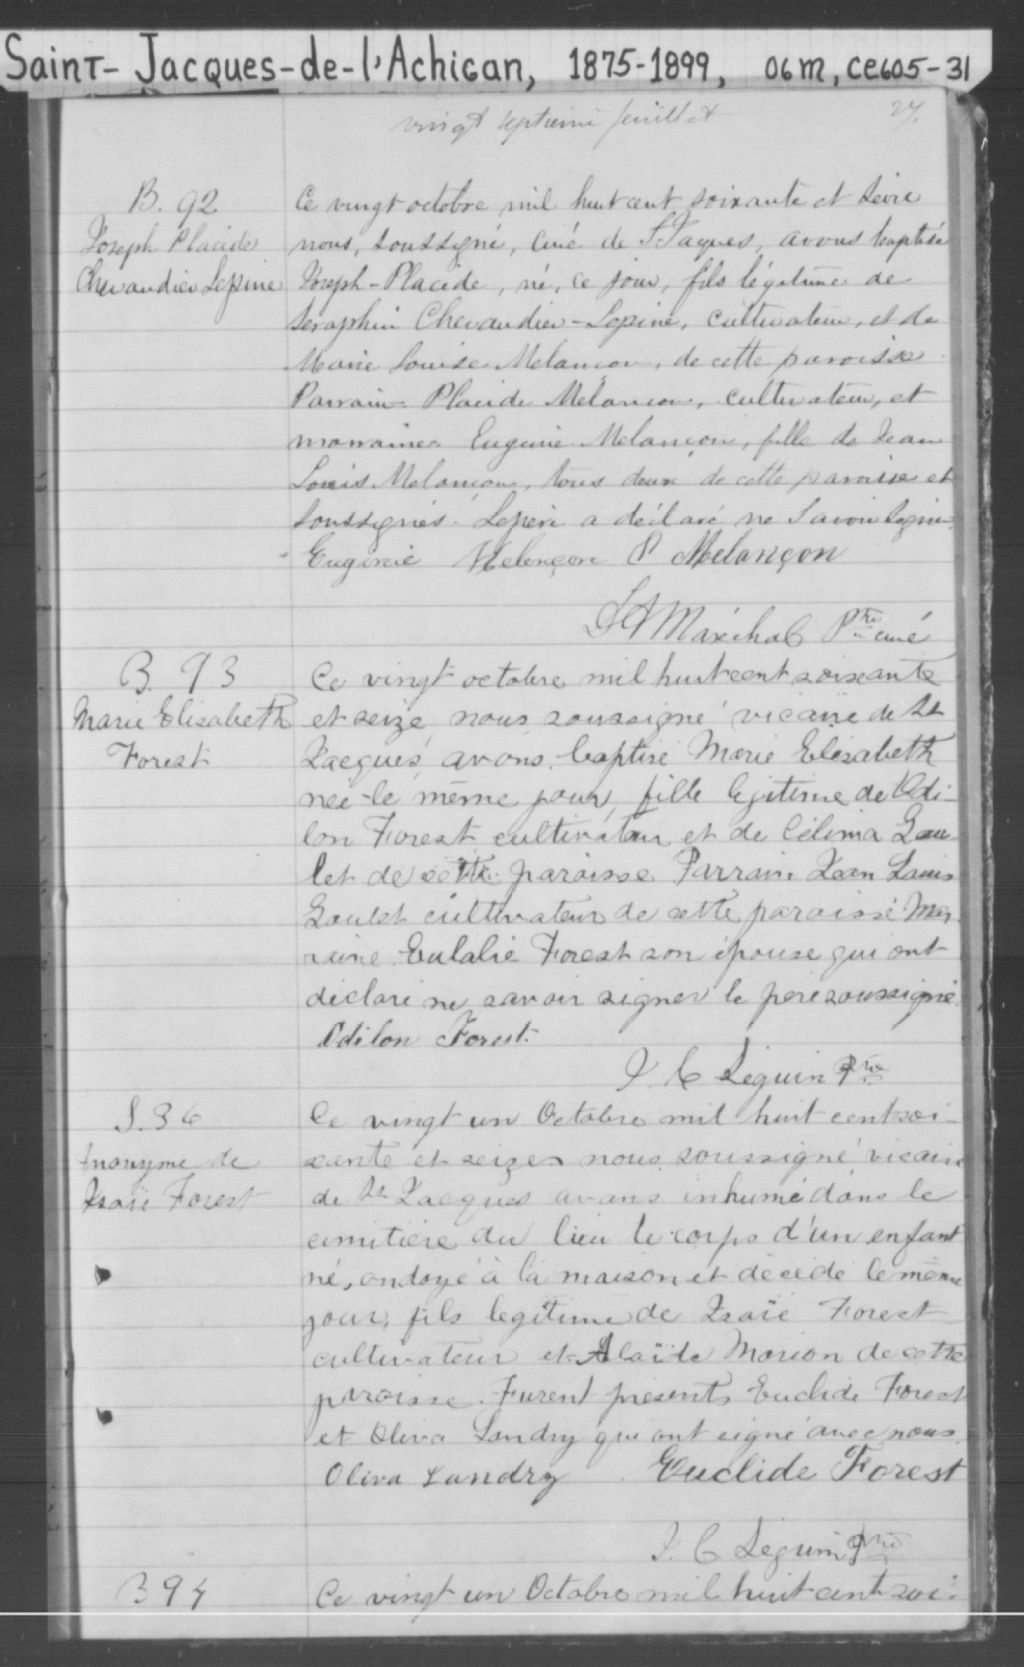 Saint-Jacques-de-l'Achigan, 1875-1899, 06M, CE605-31
vingt septieme feuillet 27.
B. 92
Joseph Placide
Chevaudier Lepine
Ce vingt octobre mil huit cent soixante et seize
nous, soussigné, curé de St Jaques, avons baptisé
Joseph-Placide, né, ce jour, fils légitime de
Seraphin Chevaudier-Lepine, cultivateur, et de
Marie Louise Melançon, de cette paroisse
Parrain Placide Melançon, cultivateur, et
marraine Eugenie Melançon, fille de Jean
Louis Melançon, tous deux de cette paroisse et
soussignés. Le père a déclaré ne savoir signer
Eugenie Melençon P Melançon
Maréchal Ptre curé
B. 93
Marie Elisabeth
Forest
Ce vingt octobre mil huit cent soixante
et seize nous soussigné vicaire de St
Jacques avons baptisé Marie Elisabeth
neé le même jour, fille legitime de Odi-
lon Forest cultivateur et de Célima Gou-
let de cette paroisse Parrain Jean Louis
Goulet cultivateur de cette paroisse Mar
raine Eulalie Forest son épouse qui ont
déclaré ne savoir signer le pere soussigné.
Odilon Forest.
J. C Séguin Ptre
S. 36
Anonyme de
Isaïe Forest
Ce vingt un Octobre mil huit cent soi-
xante et seize nous soussigné vicaire
de St Jacques avons inhumé dans le
cimitière du lieu le corps d'un enfant
né, ondoyé à la maison et décédé le même
jour, fils legitime de Isaïe Forest
cultivateur et Alaïde Morion de cette
paroisse. Furent présents Euclide Forest
et Oliva Landry qui ont signé avec nous.
Oliva Landry Euclide Forest
J. C Séguin Ptre
B 94
Ce vingt un Octobre mil huit cent soi-